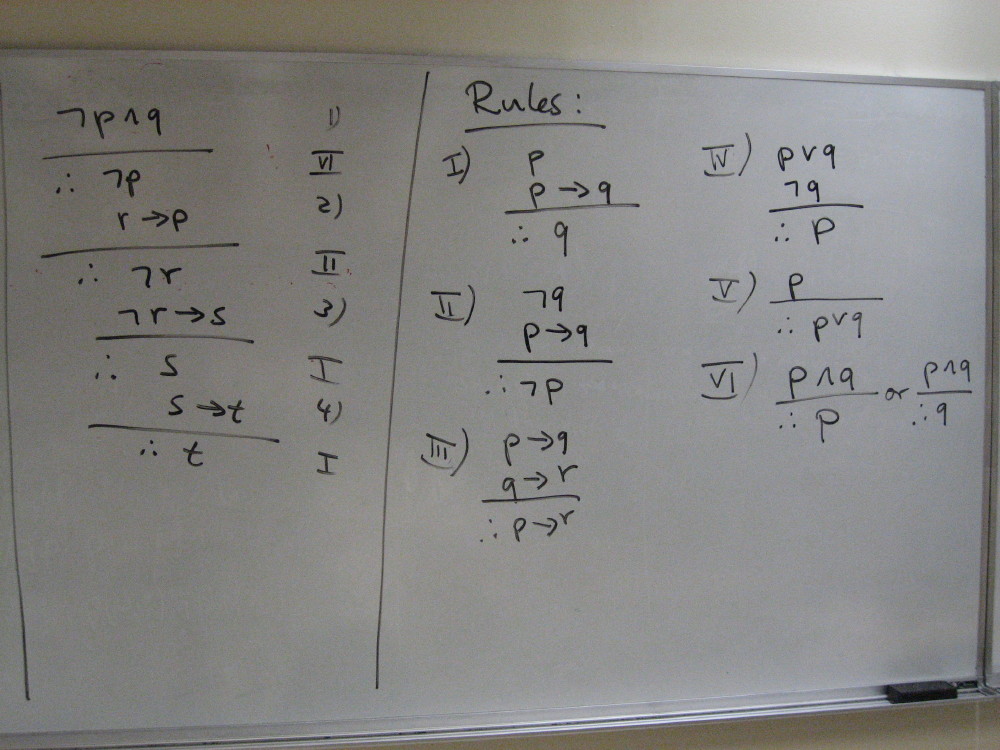 ¬p∧q 1)
∴ ¬p VI
r→p 2)
∴ ¬r II
¬r→s 3)
∴ s I
s→t 4)
∴ t I
Rules:
I) p
p→q
∴ q
II) ¬q
p→q
∴ ¬p
III) p→q
q→r
∴ p→r
IV) p∨q
¬q
∴ p
V) p
∴ p∨q
VI) p∧q or p∧q
∴ p ∴ q